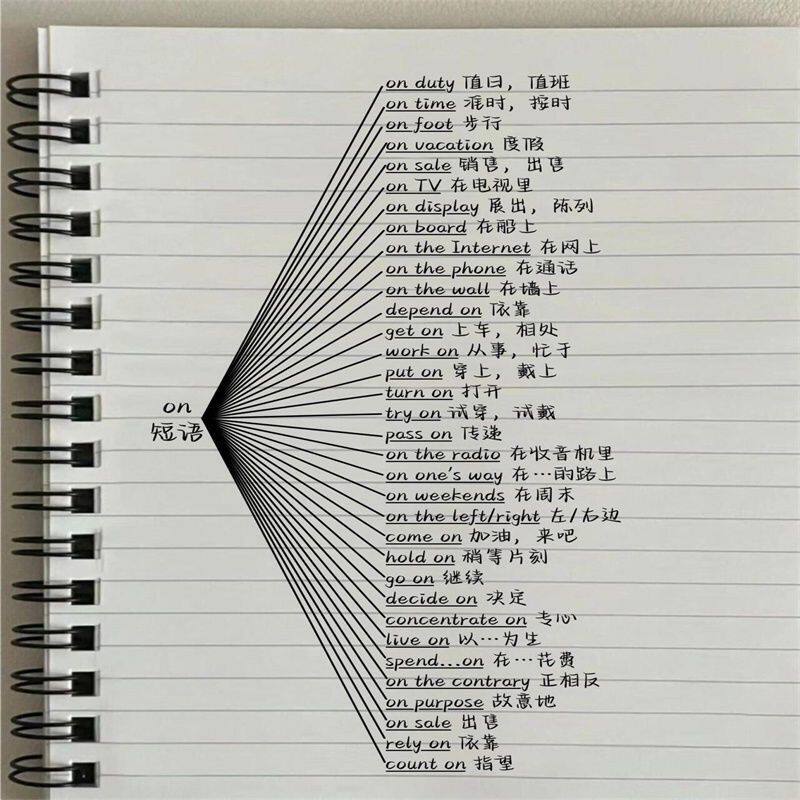 on duty 值日，值班
on time 准时，按时
on foot 步行
on vacation 度假
on sale 销售，出售
on TV 在电视里
on display 展出，陈列
on board 在船上
on the Internet 在网上
on the phone 在通话
on the wall 在墙上
depend on 依靠
get on 上车，相处
work on 从事，忙于
put on 穿上，戴上
turn on 打开
on
短语
try on 试穿，试戴
pass on 传递
on the radio 在收音机里
on one's way 在…的路上
on weekends 在周末
on the left/right 左/右边
come on 加油，来吧
hold on 稍等片刻
go on 继续
decide on 决定
concentrate on 专心
live on 以…为生
spend...on 在…花费
on the contrary 正相反
on purpose 故意地
on sale 出售
rely on 依靠
count on 指望